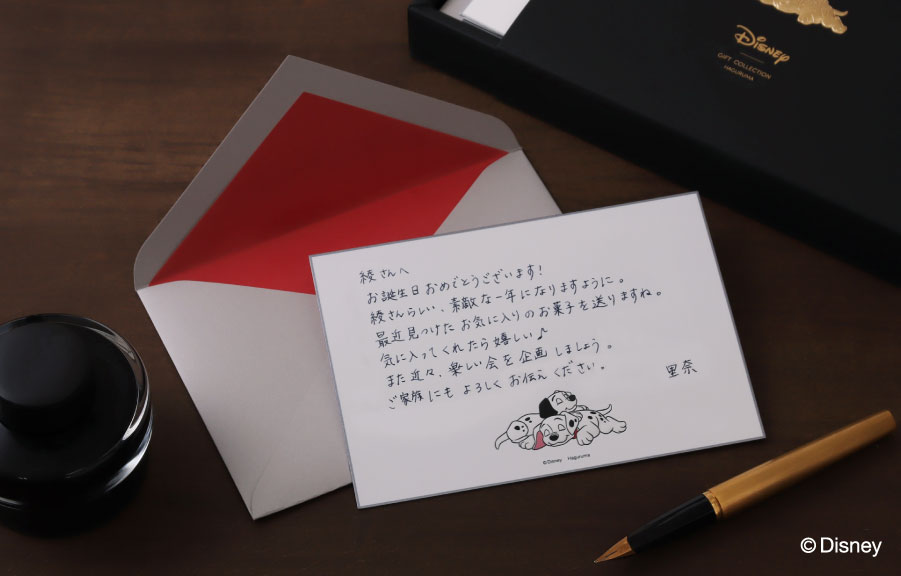 Disney
GIFT COLLECTION
HAGURUMA
綾さんへ
お誕生日おめでとうございます!
綾さんらしい、素敵な一年になりますように。
最近見つけたお気に入りのお菓子を送りますね。
気に入ってくれたら嬉しい♪
また近々、楽しい会を企画しましょう。
ご家族にもよろしくお伝えください。
里奈
©Disney Haguruma
©Disney